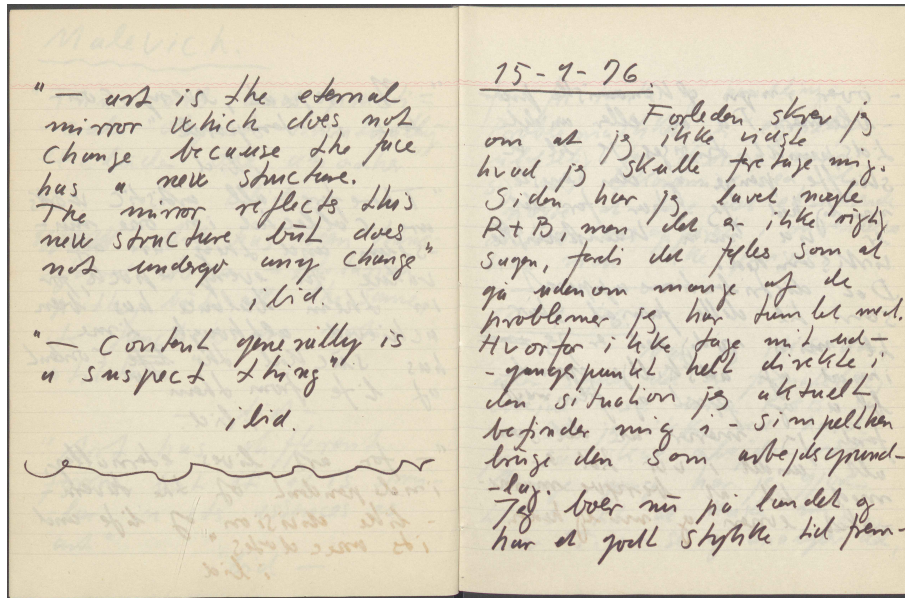 Malevich.
"— art is the eternal
mirror which does not
change because the face
has a new structure.
The mirror reflects this
new structure but does
not undergo any change"
ibid.
"— Content generally is
a suspect thing"
ibid.
15-9-76
Forleden skrev jeg
om at jeg ikke vidste
hvad jeg skulle foretage mig.
Siden har jeg lavet nogle
R+B men det er ikke rigtig
sagen, fordi det føles som at
gå udenom mange af de
problemer jeg har tumlet med.
Hvorfor ikke tage mit ud-
-gangspunkt helt direkte i
den situation jeg aktuelt
befinder mig i - simpelthen
bruge den som arbejdsgrund-
-lag.
Jeg boer nu på landet og
har et godt stykke tid frem-